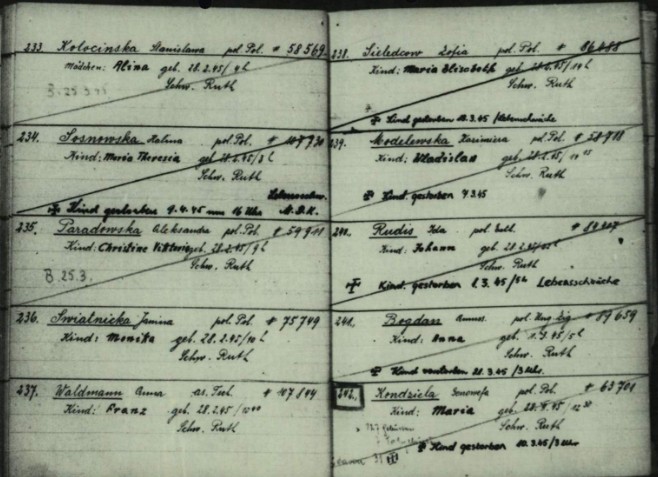 233. Kolocinska Stanislawa pol. Pol. # 58569
Mädchen: Alina geb. 28.2.45/9h
Schw. Ruth
B. 25.3.45
234. Sosnowska Halina pol. Pol. #
Kind: Maria Theresia geb. 28.2.45/8h
Schw. Ruth
Lebensschw.
✠ Kind gestorben 9.4.45 um 16 Uhr
235. Paradowska Aleksandra pol. Pol. # 59911
Kind: Christine Viktoria geb. 28.2.45/9h
Schw. Ruth
B. 25.3.
236. Swiatnicka Janina pol. Pol. # 75749
Kind: Monika geb. 28.2.45/10h
Schw. Ruth
237. Waldmann Anna as. Tsch. # 107844
Kind: Franz geb. 28.2.45/
Schw. Ruth
238. Sieledcow Zofia pol. Pol. #
Kind: Maria Elisabeth geb. 28.2.45/14h
Schw. Ruth
✠ Kind gestorben 10.3.45/Lebensschwäche
239. Modelewska Kazimiera pol. Pol. # 58788
Kind: Wladislaw geb. 28.2.45/
Schw. Ruth
✠ Kind gestorben 7.3.45
240. Rudis Ida pol.
Kind: Johann geb. 28.2.45/
Schw. Ruth
✠ Kind gestorben 1.3.45/5h Lebensschwäche
241. Bogdan pol. Ung. Zig. # 89659
Kind: Anna geb. 1.3.45/5h
Schw. Ruth
✠ Kind verstorben 21.3.45/3 Uhr.
242. Kondziela Genowefa pol. Pol. # 63701
Kind: Maria geb.
Schw. Ruth
✠ Kind gestorben 10.3.45/3 Uhr